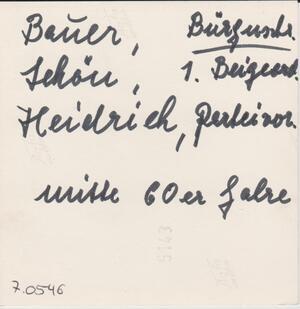 Bauer, Bürgmstr.
Schön, 1. Beigeord.
Heidrich, Parteivor.
mitte 60er Jahre
5143
7.0546